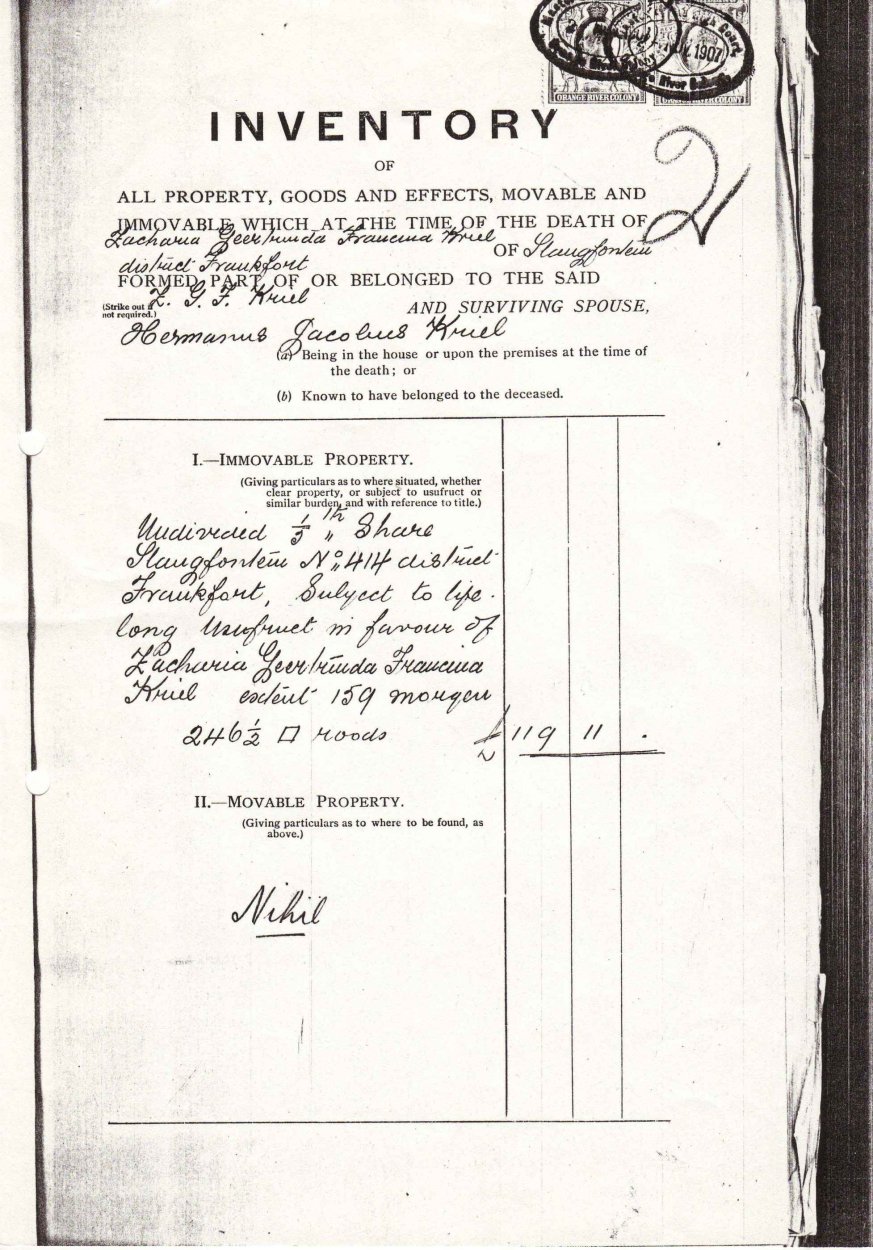 1907
ORANGE RIVER COLONY
INVENTORY
2
OF
ALL PROPERTY, GOODS AND EFFECTS, MOVABLE AND
IMMOVABLE WHICH AT THE TIME OF THE DEATH OF
Zacharia Geertruida Francina Kriel OF Slangfontein
district Frankfort
FORMED PART OF OR BELONGED TO THE SAID
(Strike out if not required.) Z. G. F. Kriel AND SURVIVING SPOUSE,
Hermanus Jacobus Kriel
(a) Being in the house or upon the premises at the time of
the death; or
(b) Known to have belonged to the deceased.
I.—IMMOVABLE PROPERTY.
(Giving particulars as to where situated, whether
clear property, or subject to usufruct or
similar burden, and with reference to title.)
Undivided 1/5 th Share
Slangfontein No 414 district
Frankfort, Subject to life-
long Usufruct in favour of
Zacharia Geertruida Francina
Kriel extent 159 morgen
246 1/2 □ roods £ 119 11 .
II.—MOVABLE PROPERTY.
(Giving particulars as to where to be found, as
above.)
Nihil